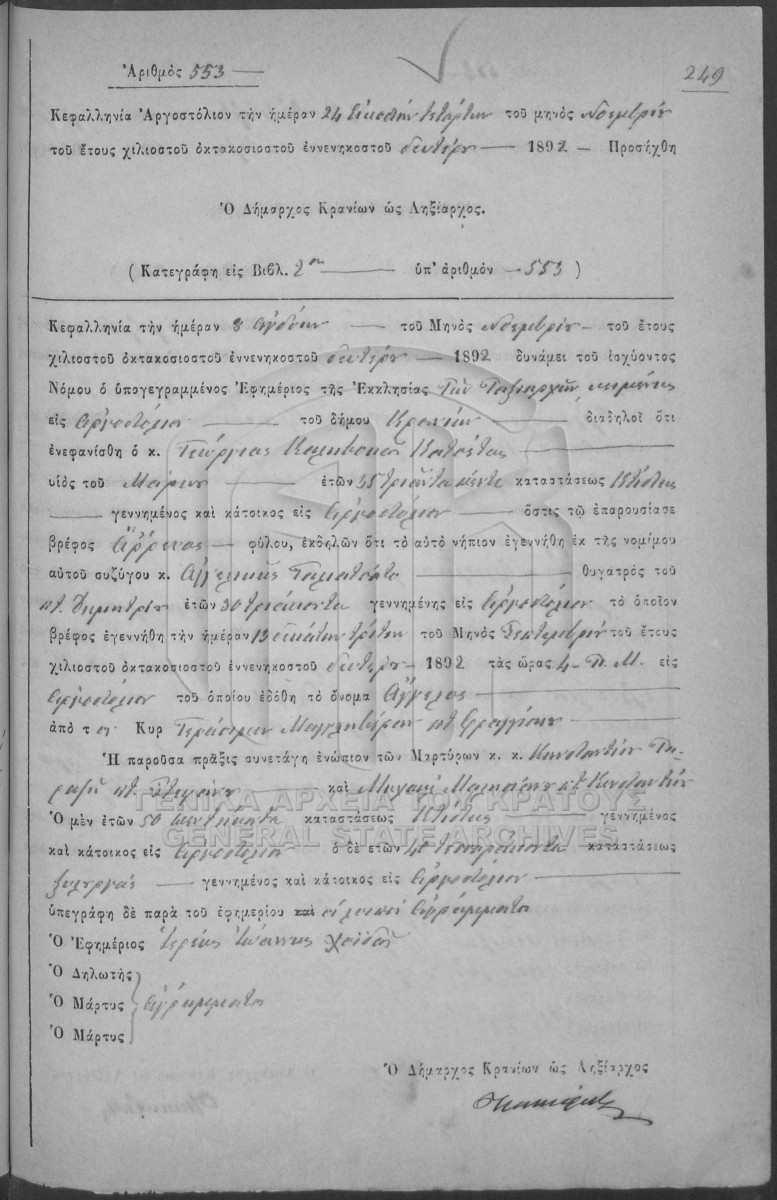 Ἀριθμὸς 553
249
Κεφαλληνία Ἀργοστόλιον τὴν ἡμέραν 24 εἰκοστὴν τετάρτην τοῦ μηνὸς Νοεμβρίου
τοῦ ἔτους χιλιοστοῦ ὀκτακοσιοστοῦ ἐννενηκοστοῦ δευτέρου 1892 — Προσήχθη
Ὁ Δήμαρχος Κρανίων ὡς Ληξίαρχος.
( Κατεγράφη εἰς Βιβλ. 2ον ὑπ' ἀριθμὸν 553 )
Κεφαλληνία τὴν ἡμέραν 8 ὀγδόην τοῦ Μηνὸς Νοεμβρίου τοῦ ἔτους
χιλιοστοῦ ὀκτακοσιοστοῦ ἐννενηκοστοῦ δευτέρου 1892 δυνάμει τοῦ ἰσχύοντος
Νόμου ὁ ὑπογεγραμμένος Ἐφημέριος τῆς Ἐκκλησίας Τῶν Ταξιαρχῶν κειμένης
εἰς Ἀργοστόλιον τοῦ δήμου Κρανίων διαδηλοῖ ὅτι
ἐνεφανίσθη ὁ κ. Γεώργιος
υἱὸς τοῦ ἐτῶν 35 τριάντα πέντε καταστάσεως Κτίστης
γεννημένος καὶ κάτοικος εἰς Ἀργοστόλιον ὅστις τῷ ἐπαρουσίασε
βρέφος ἄρρενος φύλου, ἐκδηλῶν ὅτι τὸ αὐτὸ νήπιον ἐγεννήθη ἐκ τῆς νομίμου
αὐτοῦ συζύγου κ. Ἀγγελικῆς θυγατρὸς τοῦ
πτ. Δημητρίου ἐτῶν 30 τριάκοντα γεννημένης εἰς Ἀργοστόλιον τὸ ὁποῖον
βρέφος ἐγεννήθη τὴν ἡμέραν 13 δεκάτην τρίτην τοῦ Μηνὸς Σεπτεμβρίου τοῦ ἔτους
χιλιοστοῦ ὀκτακοσιοστοῦ ἐννενηκοστοῦ δευτέρου 1892 τὰς ὥρας 4 Π. Μ. εἰς
Ἀργοστόλιον τοῦ ὁποίου ἐδόθη τὸ ὄνομα Ἄγγελος
ἀπὸ τ ον Κυρ Γεράσιμον
Ἡ παροῦσα πρᾶξις συνετάγη ἐνώπιον τῶν Μαρτύρων κ. κ. Κωνσταντίνου
καὶ Κωνσταντίνου
ΓΕΝΙΚΑ ΑΡΧΕΙΑ ΤΟΥ ΚΡΑΤΟΥΣ
Ὁ μὲν ἐτῶν 50 πεντήκοντα καταστάσεως Κτίστης γεννημένος
GENERAL STATE ARCHIVES
καὶ κάτοικος εἰς Ἀργοστόλιον ὁ δὲ ἐτῶν 40 τεσσαράκοντα καταστάσεως
ξυλουργὸς γεννημένος καὶ κάτοικος εἰς Ἀργοστόλιον
ὑπεγράφη δὲ παρὰ τοῦ ἐφημερίου καὶ οἱ λοιποὶ ἀγράμματοι
Ὁ Ἐφημέριος Ἱερεὺς Ἰωάννης
Ὁ Δηλωτὴς
Ὁ Μάρτυς ἀγράμματοι
Ὁ Μάρτυς
Ὁ Δήμαρχος Κρανίων ὡς Ληξίαρχος